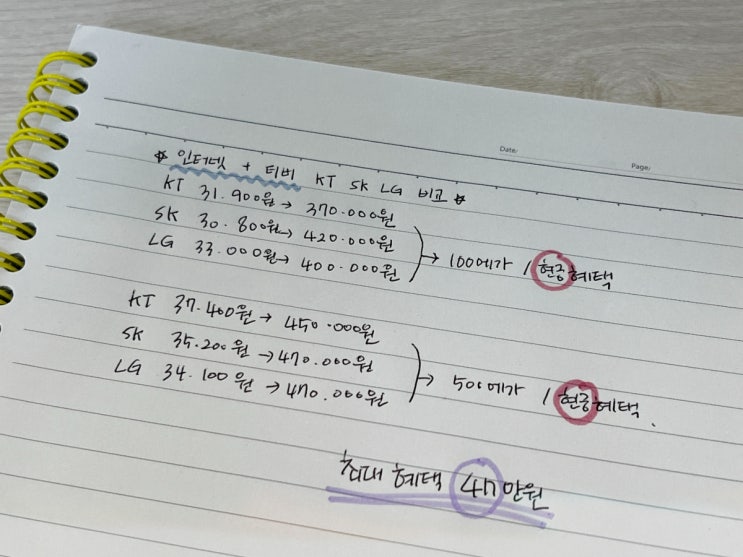 Date/
Page/
☆ 인터넷 + 티비 KT SK LG 비교 ☆
KT 31.900원 → 370.000원
SK 30.800원 → 420.000원
LG 33.000원 → 400.000원
→ 100메가 / 현금혜택
KT 37.400원 → 450.000원
SK 35.200원 → 470.000원
LG 34.100원 → 470.000원
→ 500메가 / 현금혜택.
최대 혜택 47만원